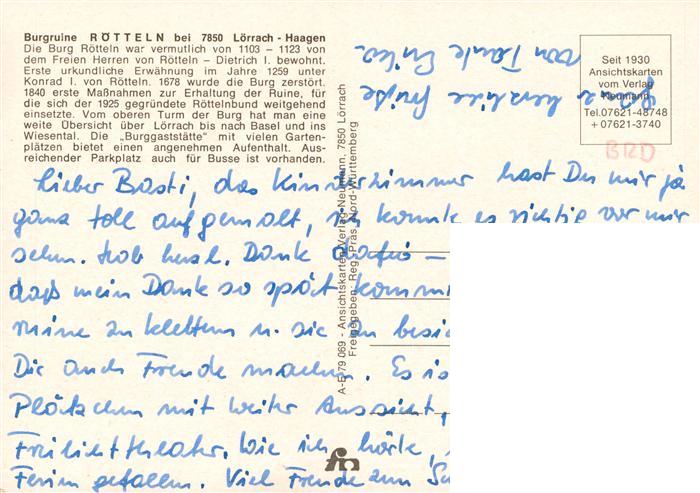 Burgruine RÖTTELN bei 7850 Lörrach - Haagen
Die Burg Rötteln war vermutlich von 1103 – 1123 von
dem Freien Herren von Rötteln – Dietrich I. bewohnt.
Erste urkundliche Erwähnung im Jahre 1259 unter
Konrad I. von Rötteln. 1678 wurde die Burg zerstört.
1840 erste Maßnahmen zur Erhaltung der Ruine, für
die sich der 1925 gegründete Röttelnbund weitgehend
einsetzte. Vom oberen Turm der Burg hat man eine
weite Übersicht über Lörrach bis nach Basel und ins
Wiesental. Die „Burggaststätte“ mit vielen Garten-
plätzen bietet einen angenehmen Aufenthalt. Aus-
reichender Parkplatz auch für Busse ist vorhanden.
Seit 1930
Ansichtskarten
vom Verlag
Neumann
Tel.07621-48748
+ 07621-3740
BRD
Lieber Basti, das Kinderzimmer hast Du mir ja
ganz toll aufgemalt, ich konnte es richtig vor mir
sehn. Hab herzl. Dank dafür –
daß mein Dank so spät kommt
ruine zu klettern u. sie zu besic
Dir auch Freude machen. Es is
Plätzchen mit weiter Aussicht,
Freilichttheater. Wie ich hörte,
Ferien gefallen. Viel Freude zum Sc
herzliche Grüße
von Tante Erika
A-E 79 069 - Ansichtskarten-Verlag-Neumann, 7850 Lörrach
Freigegeben Reg. Präs. Nord-Württemberg